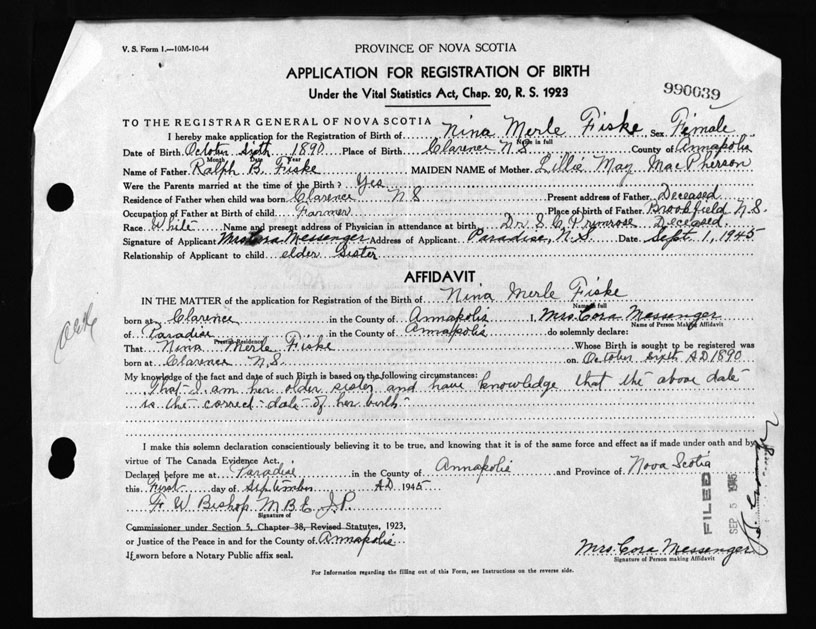 V. S. Form 1.—10M-10-44
PROVINCE OF NOVA SCOTIA
APPLICATION FOR REGISTRATION OF BIRTH
Under the Vital Statistics Act, Chap. 20, R. S. 1923
990039
TO THE REGISTRAR GENERAL OF NOVA SCOTIA
I hereby make application for the Registration of Birth of Nina Merle Fiske Sex Female
Name in full
Date of Birth October Sixth 1890 Place of Birth Clarence N.S. County of Annapolis
Month Date Year
Name of Father Ralph B. Fiske MAIDEN NAME of Mother Lillie May MacPherson
Were the Parents married at the time of the Birth? Yes
Residence of Father when child was born Clarence N S Present address of Father Deceased
Occupation of Father at Birth of child Farmer Place of birth of Father Brookfield N.S.
Race White Name and present address of Physician in attendance at birth Dr. S. C. Primrose Deceased
Signature of Applicant Mrs Cora Messenger Address of Applicant Paradise, N.S. Date Sept. 1, 1945
Relationship of Applicant to child elder Sister
AFFIDAVIT
IN THE MATTER of the application for Registration of the Birth of Nina Merle Fiske
Name in full
born at Clarence in the County of Annapolis I, Mrs. Cora Messenger
Name of Person Making Affidavit
of Paradise in the County of Annapolis do solemnly declare:
Present Residence
That Nina Merle Fiske Whose Birth is sought to be registered was
born at Clarence N.S. on October Sixth AD 1890
My knowledge of the fact and date of such Birth is based on the following circumstances:
That I am her older sister and have knowledge that the above date
is the correct date of her birth
I make this solemn declaration conscientiously believing it to be true, and knowing that it is of the same force and effect as if made under oath and by
virtue of The Canada Evidence Act.
Declared before me at Paradise in the County of Annapolis and Province of Nova Scotia
this First day of September AD 1945
F. W Bishop M.B.E. J.P.
Signature of
Commissioner under Section 5, Chapter 38, Revised Statutes, 1923,
or Justice of the Peace in and for the County of Annapolis
If sworn before a Notary Public affix seal.
FILED SEP 5 1945
Mrs. Cora Messenger
Signature of Person making Affidavit
For Information regarding the filling out of this Form, see Instructions on the reverse side.